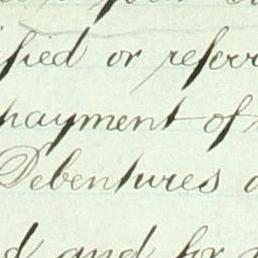 fied or refer
payment of
Debentures
d and for